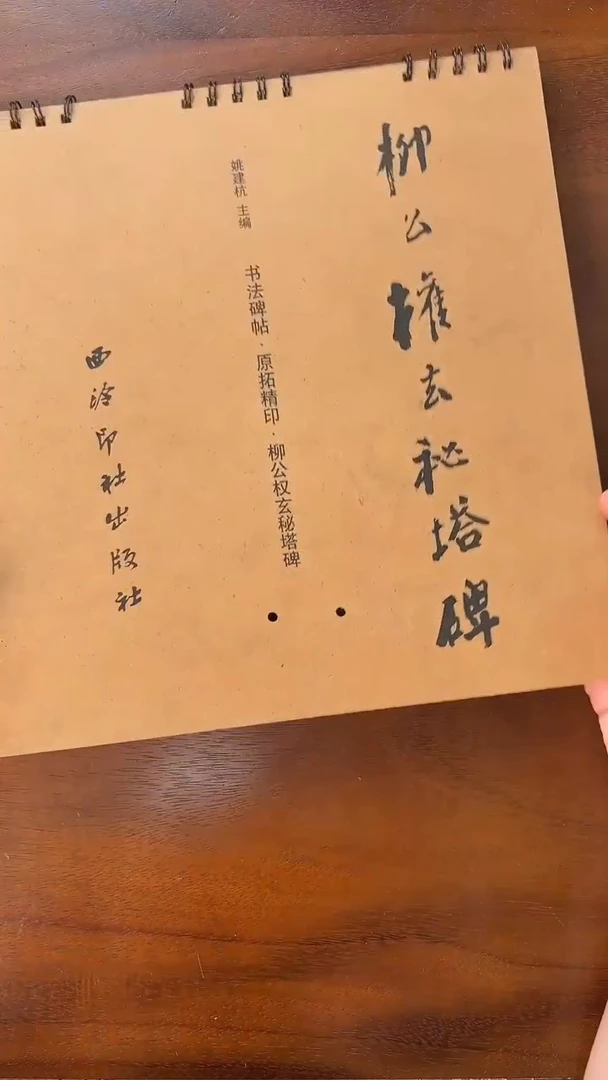 柳公權玄秘塔碑
姚建杭 主编
书法碑帖·原拓精印·柳公权玄秘塔碑
西泠印社出版社